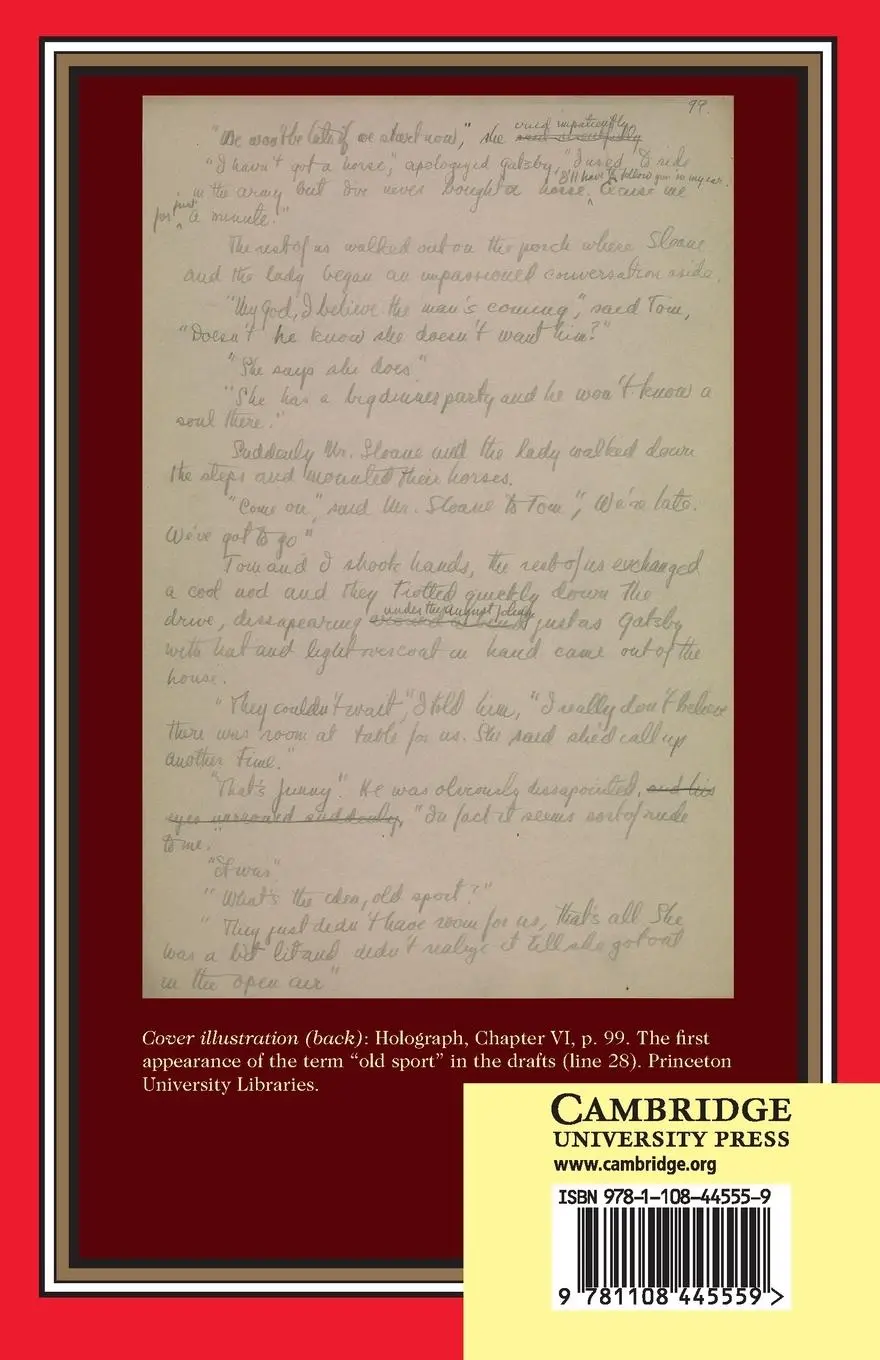 99.
said impatiently
"We won't be late if we start now," she said
"I havn't got a horse," apologized Gatsby, "I used to ride
I'll have to follow you in my car.
in the army but I've never bought a horse. Excuse me
just
for a minute."
The rest of us walked out on the porch where Sloane
and the lady began an impassioned conversation aside.
"My god, I believe the man's coming," said Tom,
"Doesn't he know she doesn't want him?"
"She says she does"
"She has a big dinner party and he won't know a
soul there."
Suddenly Mr. Sloane and the lady walked down
the steps and mounted their horses.
"Come on," said Mr. Sloane to Tom", We're late.
We've got to go"
Tom and I shook hands, the rest of us exchanged
a cool nod and they trotted quickly down the
under the august foliage
drive, dissapearing just as Gatsby
with hat and light overcoat in hand came out of the
house.
"They couldn't wait", I told him, "I really don't believe
there was room at table for us. She said she'd call up
another time."
"That's funny". He was obviously dissapointed, and his
eyes narrowed suddenly, "In fact it seems sort of rude
to me."
"It was"
"What's the idea, old sport?"
"They just didn't have room for us, that's all She
was a bit lit and didn't realize it till she got out
in the open air"
Cover illustration (back): Holograph, Chapter VI, p. 99. The first
appearance of the term “old sport” in the drafts (line 28). Princeton
University Libraries.
CAMBRIDGE
UNIVERSITY PRESS
www.cambridge.org
ISBN 978-1-108-44555-9
9 781108 445559 >